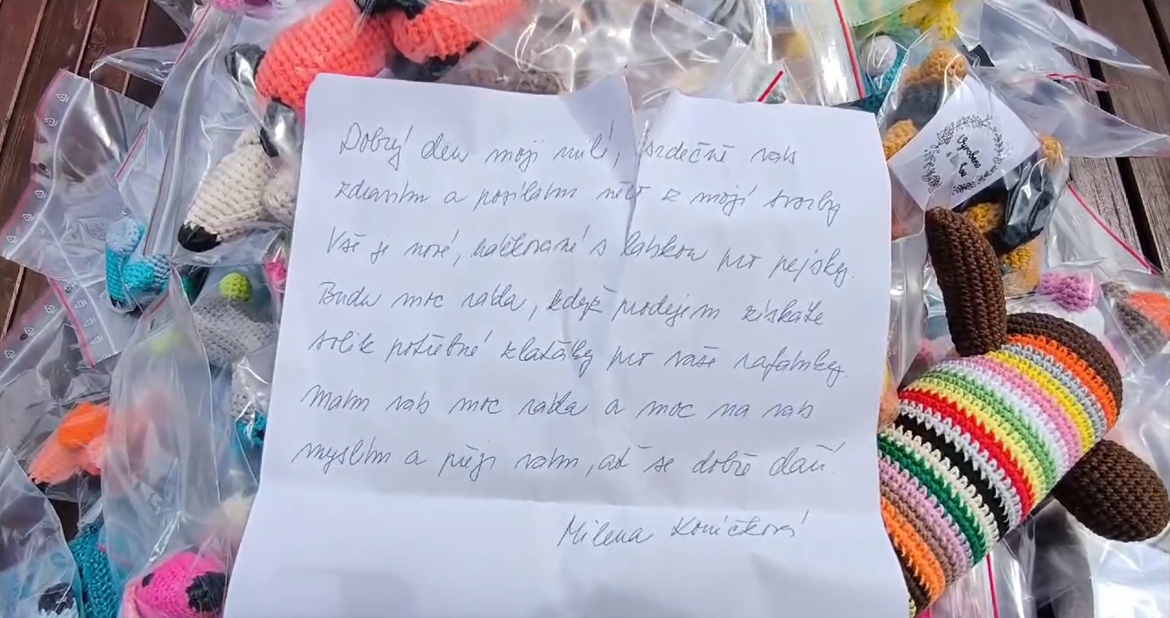 Dobrý den moji milí, srdečně vás
zdravím a posílám něco z mojí tvorby
Vše je nové, háčkované s láskou pro pejsky.
Budu moc ráda, když prodejem získáte
tolik potřebné zlaťáky pro vaše rafánky.
Mám vás moc ráda a moc na vás
myslím a přeji vám, ať se dobře daří.
Milena Koníčková
Vyrobeno